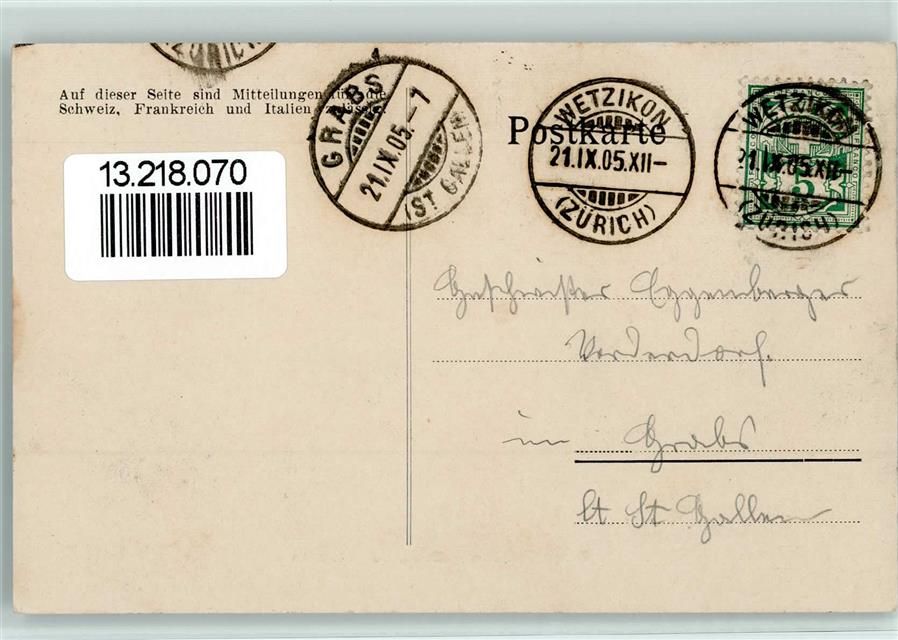 ZÜRICH
Auf dieser Seite sind Mitteilungen für die
Schweiz, Frankreich und Italien zulässig.
GRABS
21.IX.05.-7
(ST GALLEN)
WETZIKON
21.IX.05.XII-
(ZÜRICH)
WETZIKON
21.IX.05.XII-
(ZÜRICH)
5
FRANCO
Postkarte
13.218.070
Geschwister Eggenberger
Vorderdorf.
in Grabs
Ct St Gallen